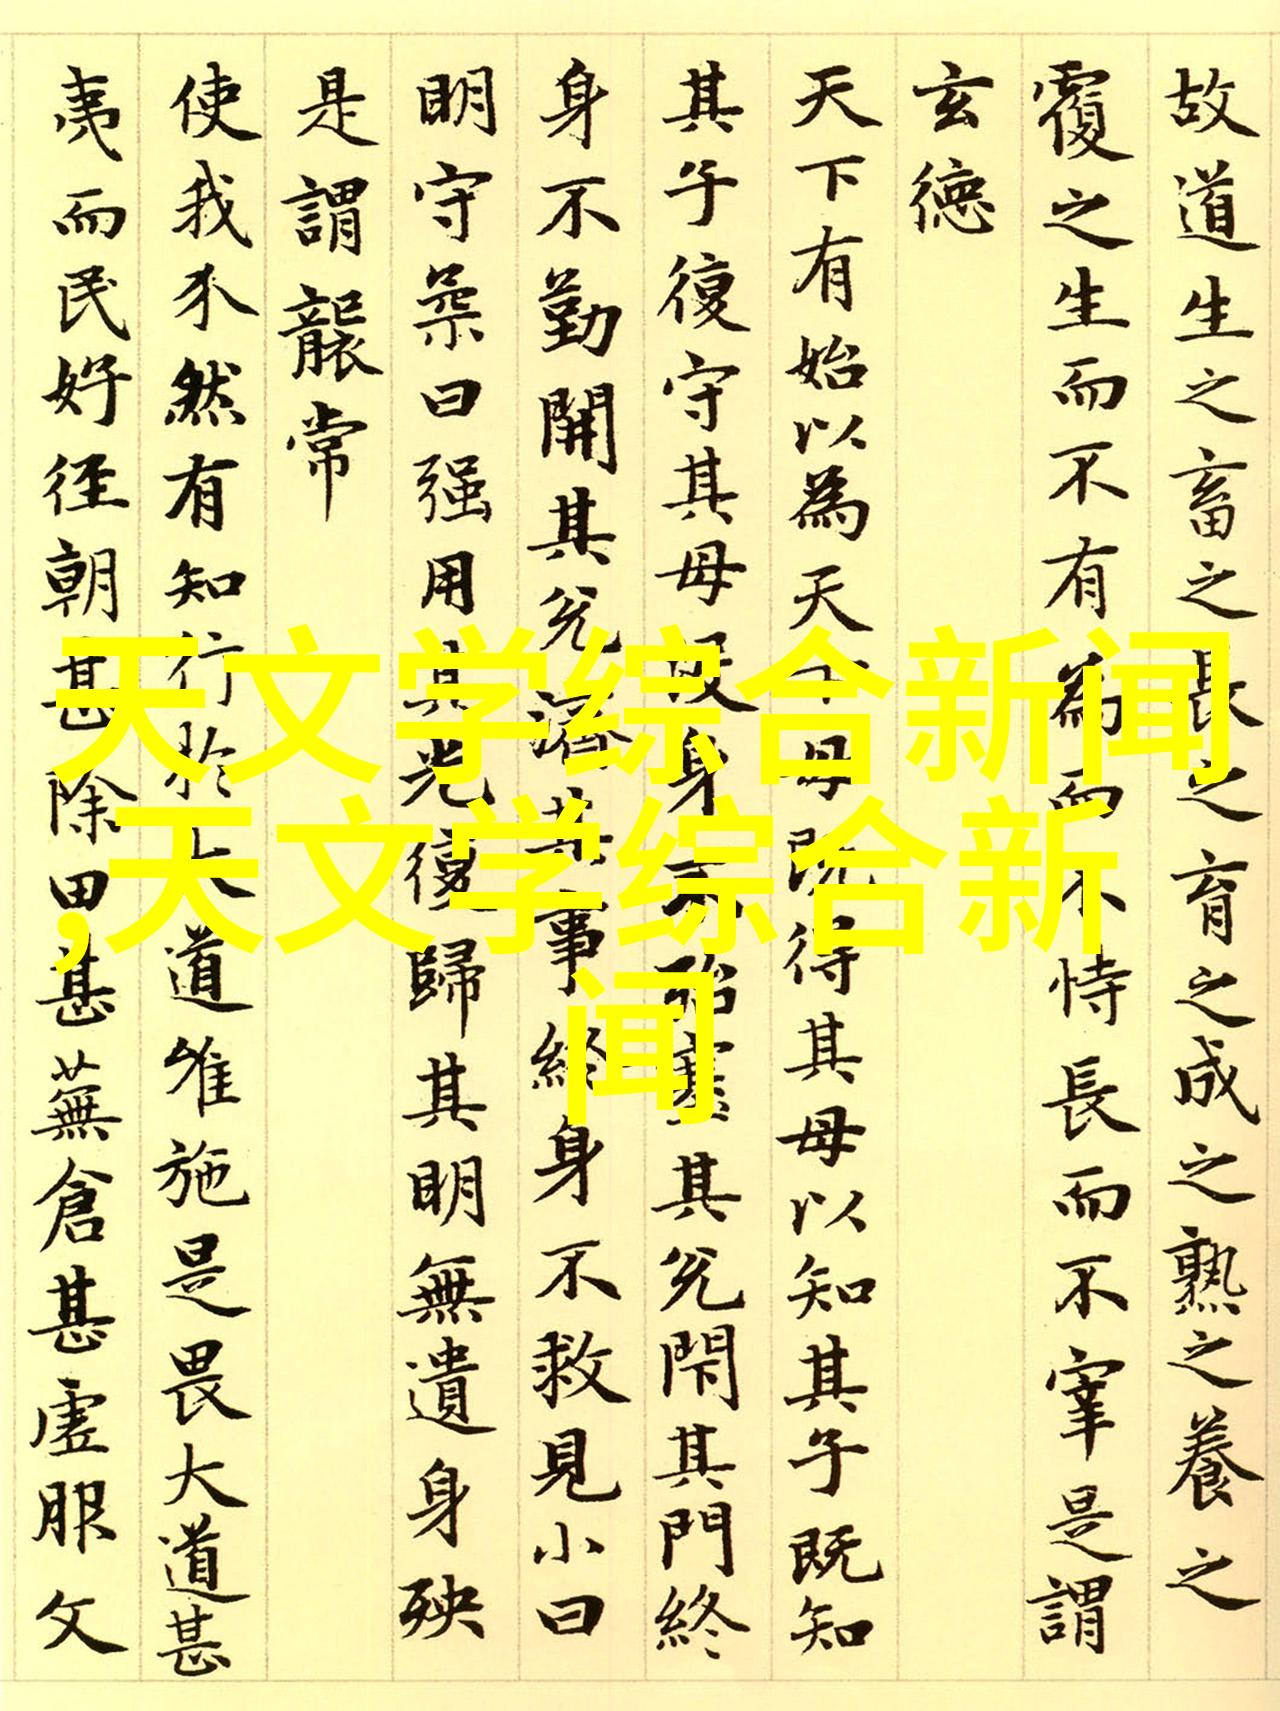 故道生之畜之長之育之成之熟之養之
覆之生而不有為而不恃長而不宰是謂
玄德
天下有始以為天下母既得其母以知其子既知
其子復守其母没身不殆塞其兊閇其門終
身不勤開其兊濟其事終身不救見小曰
明守柔曰强用其光復歸其明無遺身殃
是謂襲常
使我介然有知行於大道唯施是畏大道甚
夷而民好徑朝甚除田甚蕪倉甚虛服文
天文学综合新闻
,天文学综合新
闻